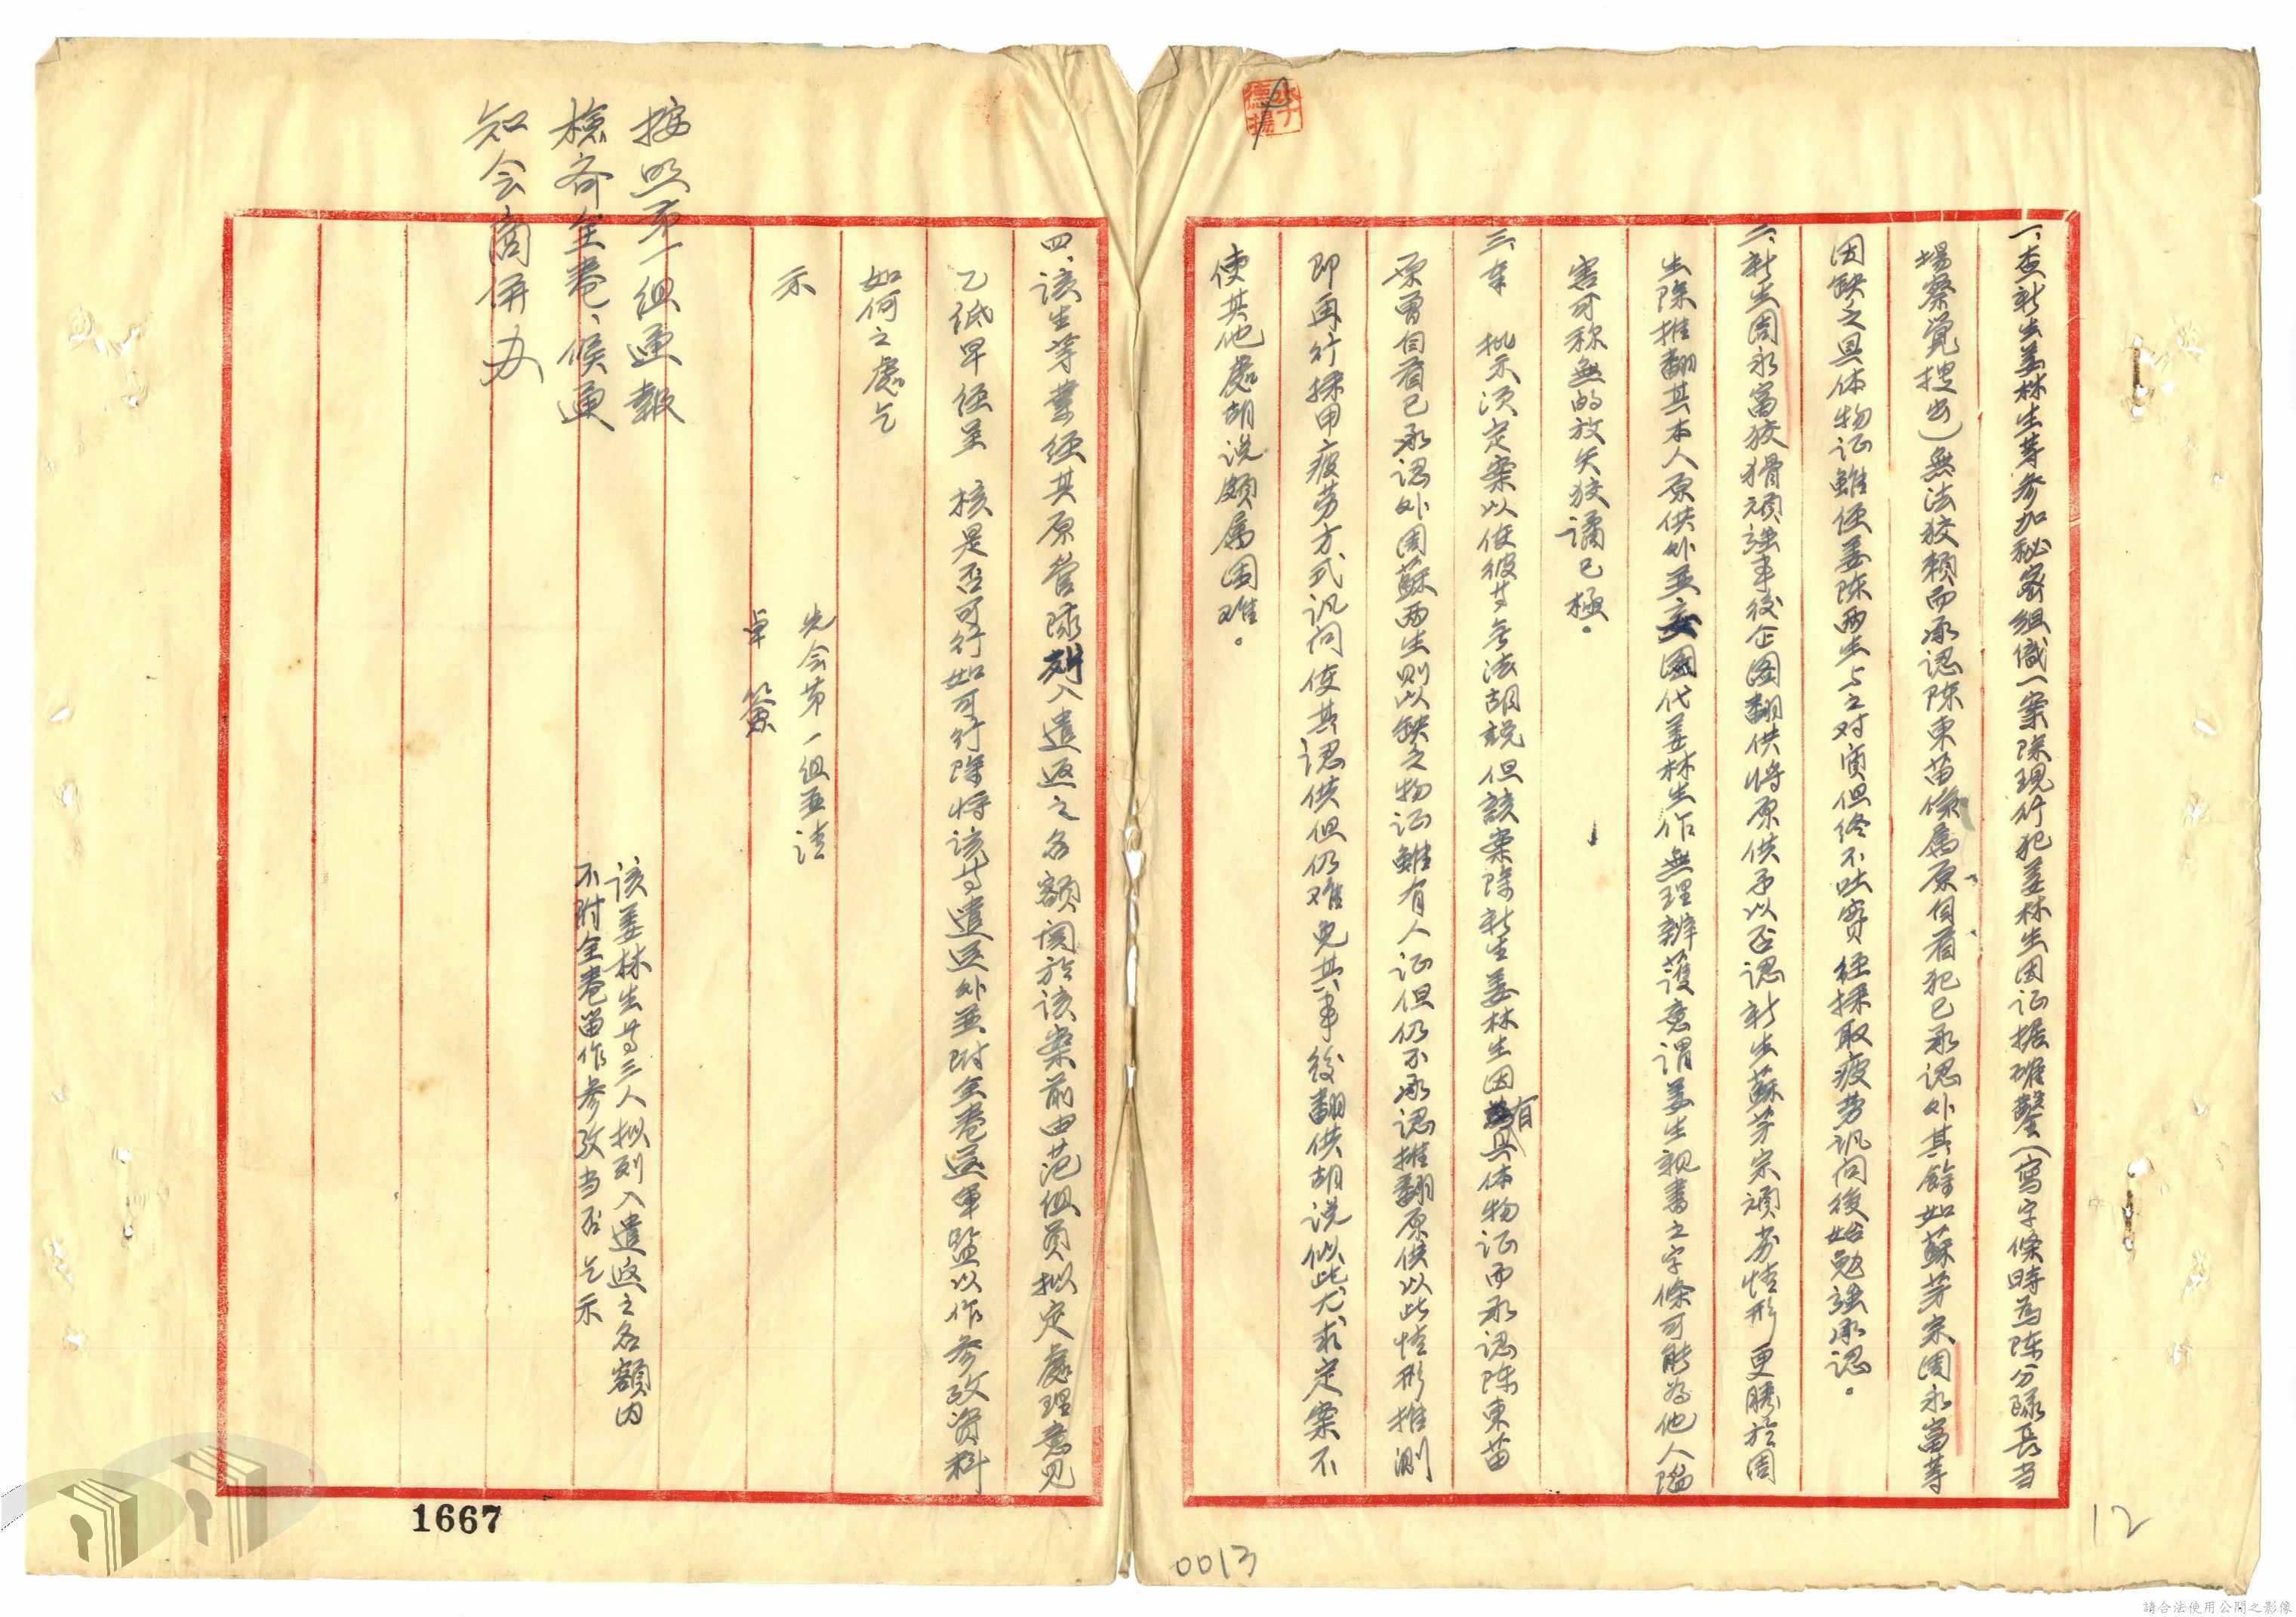 一、查新生姜林生等参加秘密組織一案除現行犯姜林生因证据確鑿（寫字條時為陈分隊長当
場察覚搜出）無法狡賴而承認陈東苗條属原自首犯已承認外其餘如蘇芽宋周永富等
因缺之具体物证雖经姜陈兩生与之对質但终不吐實经採取疲劳讯问後始勉強承認。
二、新生周永富狡猾頑強事後企图翻供將原供予以否認新生蘇芽宋頑劣情形更勝於周
生除推翻其本人原供外並妄图代姜林生作無理辨護意謂姜生親書之字條可能為他人陷
害可称無的放矢狡譎已極。
三、奉 批示须定案以使彼等無法胡說但該案除新生姜林生因有具体物证而承認陈東苗
原曾自首已承認外周蘇兩生則以缺之物证雖有人证但仍不承認推翻原供以此情形推測
即再行採甲疲劳方式讯问使其認供但仍难免其事後翻供胡说似此尤求定案不
使其他處胡说頗属困难。
四、该生等業经其原管隊列入遣返之名額関於该案前由范组員拟定處理意見
乙纸早经呈 核是否可行如可行除将该等遣送外並附全卷送軍监以作参攷資料
如何之處乞
示
先会第一组並请
卓 簽
该姜林生等三人拟列入遣返之名額内
不附全卷留作参攷当否乞示
按照第一组通報
檢齐全卷、候通
知会商併办
1667
0013
12
請合法使用公開之影像